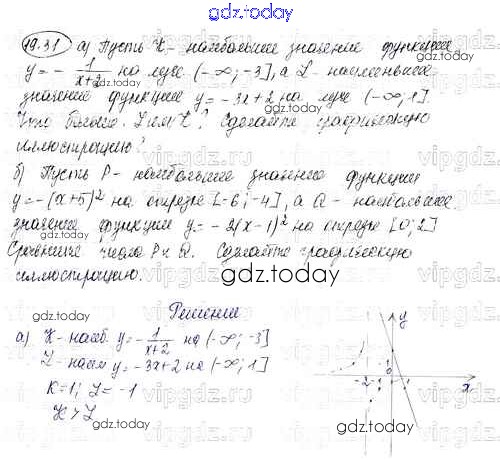 gdz.today
19.31 а) Пусть K - наибольшее значение функции
y = - 1/(x+2) на луче (-∞; -3], а L - наименьшее
значение функции y = -3x+2 на луче (-∞; 1].
Что больше: L или K? Сделайте графическую
иллюстрацию?
б) Пусть P - наибольшее значение функции
y = -(x+5)² на отрезке [-6; -4], а Q - наибольшее
значение функции y = -2(x-1)² на отрезке [0; 2]
Сравните числа P и Q. Сделайте графическую
иллюстрацию.
gdz.today
Решение
а) K - наиб. y = - 1/(x+2) на (-∞; -3]
L - наим y = -3x+2 на (-∞; 1]
K=1; L = -1
K > L
y
x
0
-2 -1
1
1
gdz.today
gdz.today
gdz.today
gdz.today
gdz.today
gdz.today
vipgdz.ru
vipgdz.ru
vipgdz.ru